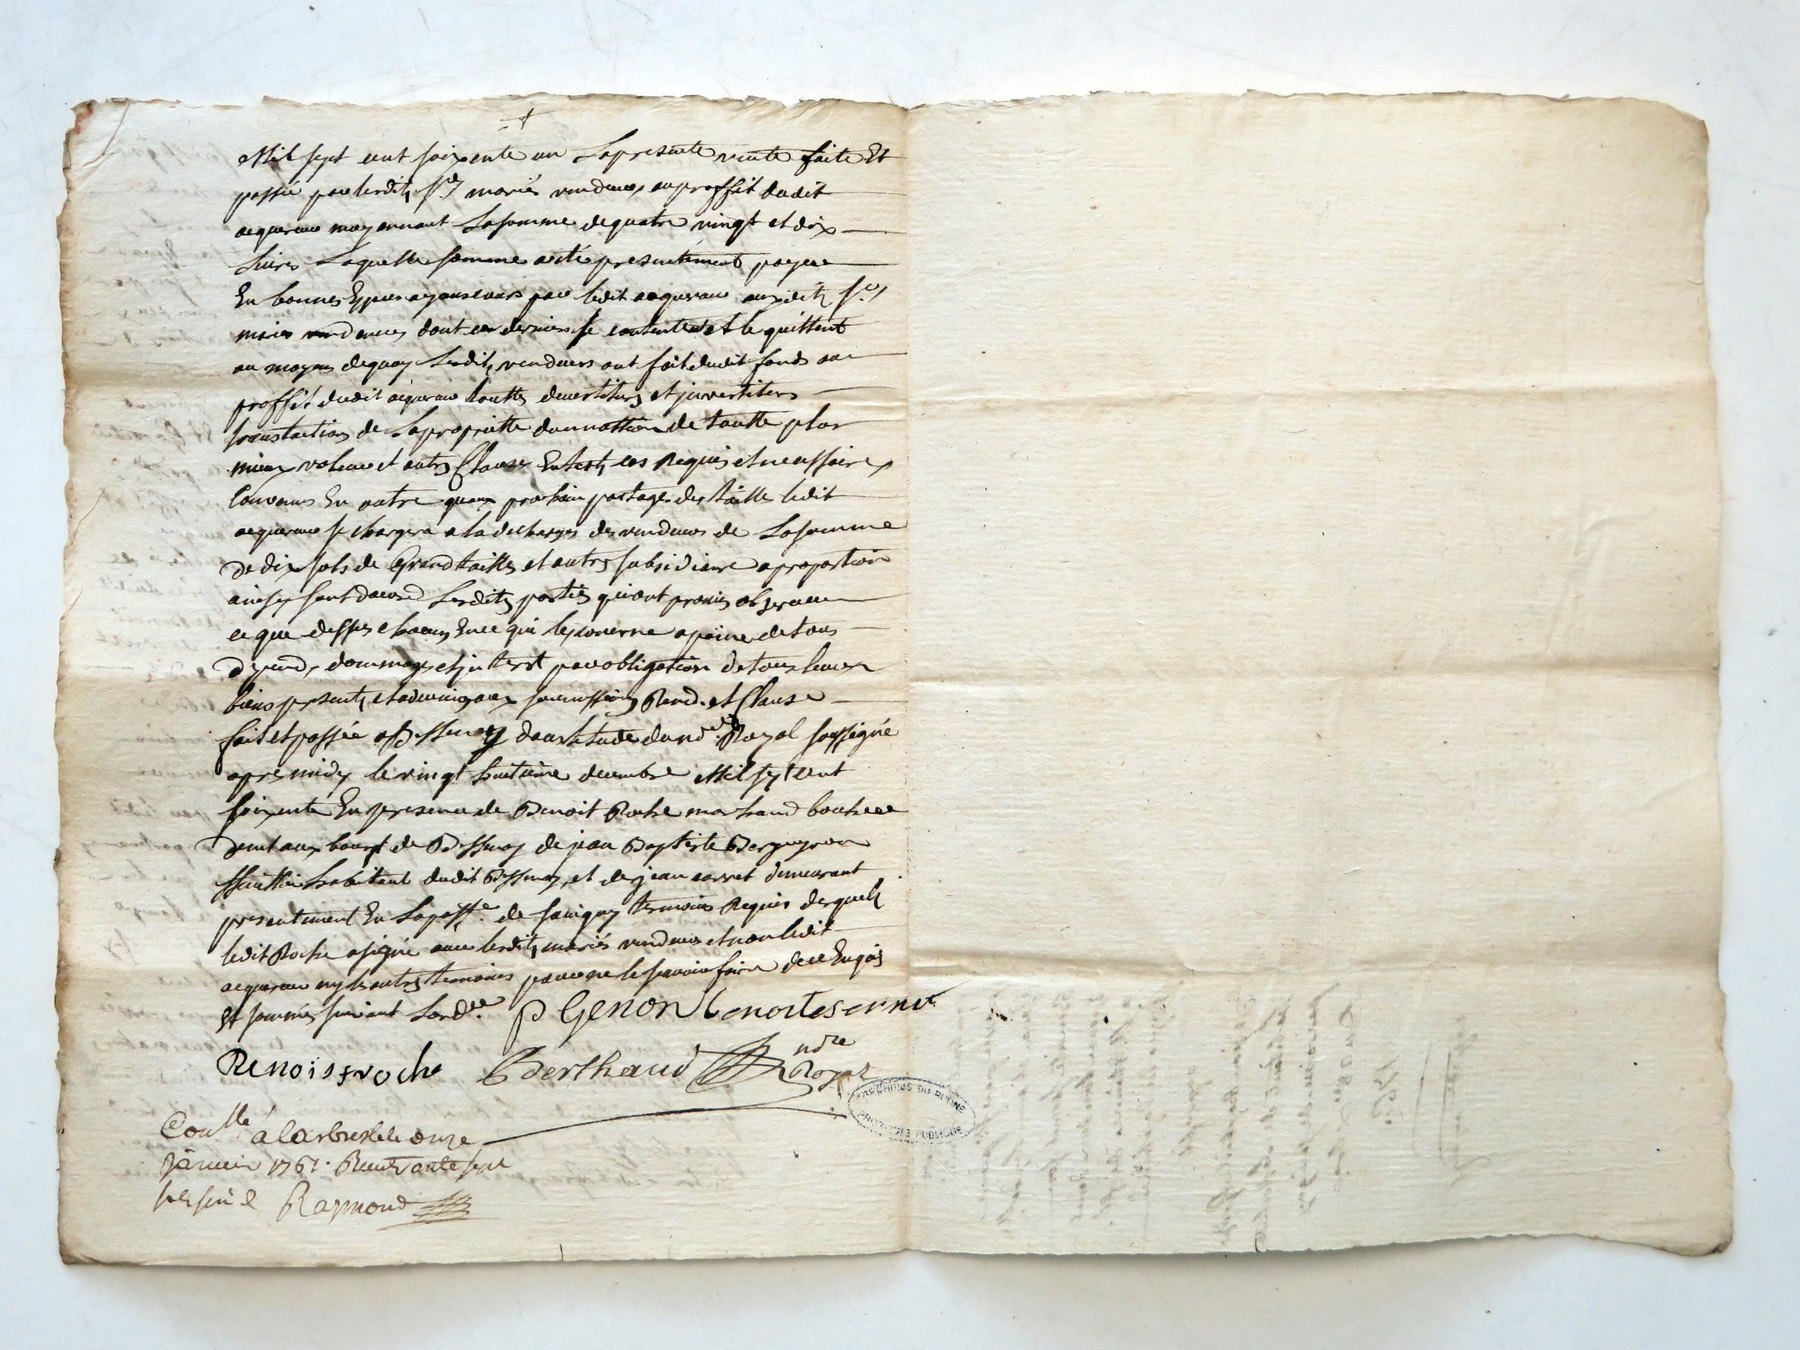 Mil sept cent soixente un La presente vente faite Et
passée par lesdits Srs mariés vendeurs au proffit dudit
acquereur moyennant La somme de quatre vingt et dix
Livres Laquelle somme a esté presentement payee
En bonnes Especes ayant cours par ledit acquereur auxdits Srs
mariés vendeurs dont ces derniers se contentent et le quittent
au moyen de quoy Lesdits vendeurs ont fait dudit fonds au
proffit dudit aquereur touttes devestitures et jnvestitures
translation de La proprietté donnation de toutte plus
mieux valeue et autres Clauses En tels cas Requis et necessaires
Convenus En outre quaux prochain partage des Taille ledit
acquereur se chargera a la décharges des vendeurs de La somme
De dix sols de Grand tailles et autres subsidiaire a proportion
ainsy sont dacord Lesdites parties qui ont promis observer
ce que dessus chacun En ce qui les concerne a peine de tous
depends dommages et jnterest par obligation de tous leurs
biens presents et advenir aux soumissions Rend. et Clause
fait et passée a Bessenay dans letude du nore Royal soussigné
apres midy le vingt huitieme decembre Mil sept cent
soixente En presence de Benoit Roche marchand boucher
demt aux bourg de Bessenay de jean Baptiste Bergeyron
habitant dudit Bessenay, et de jean carret demeurant
presentement En La parsse de savigny temoins Requis desquels
ledit Roche a signé avec lesdits mariés vendeurs et non ledit
acquereur ny les autres temoins pour ne le savoir faire de ce Enquis
Et sommés suivant Lordce. P Genon
Benois roche Berthaud nore
Royal
ARCHIVES DU RHONE
Conlle á Larbresle le onze
janvier 1761. Recu trante sept
sols six d Raymond